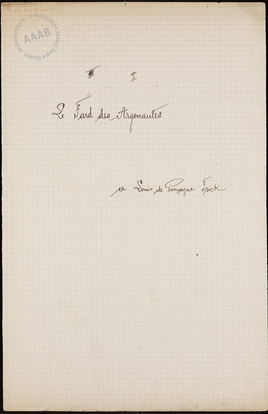 AAAB
I
Le Fard des Argonautes
à Louis de Gonzague Frick